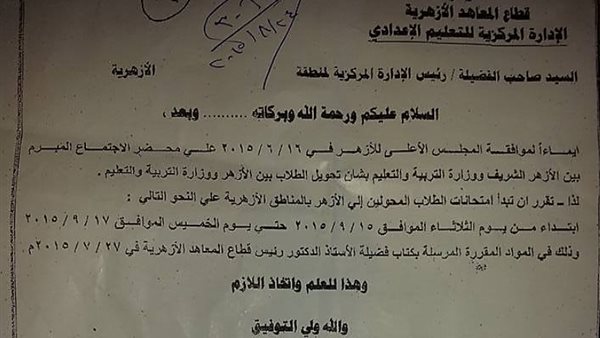 قطاع المعاهد الأزهرية
الإدارة المركزية للتعليم الإعدادي
٢٠١٥/٨/٢٤
السيد صاحب الفضيلة / رئيس الإدارة المركزية لمنطقة الأزهرية
السلام عليكم ورحمة الله وبركاته .......... وبعد ،
ايماءاً لموافقة المجلس الأعلى للأزهر في ١٦ / ٦ / ٢٠١٥ علي محضر الاجتماع المبرم
بين الأزهر الشريف ووزارة التربية والتعليم بشان تحويل الطلاب بين الأزهر ووزارة التربية والتعليم .
لذا - تقرر ان تبدأ امتحانات الطلاب المحولين إلي الأزهر بالمناطق الأزهرية علي النحو التالي :
ابتداء من يوم الثلاثاء الموافق ١٥ / ٩ / ٢٠١٥ حتي يوم الخميس الموافق ١٧ / ٩ / ٢٠١٥
وذلك في المواد المقررة المرسلة بكتاب فضيلة الأستاذ الدكتور رئيس قطاع المعاهد الأزهرية في ٢٧ / ٧ / ٢٠١٥م
وهذا للعلم واتخاذ اللازم
والله ولي التوفيق